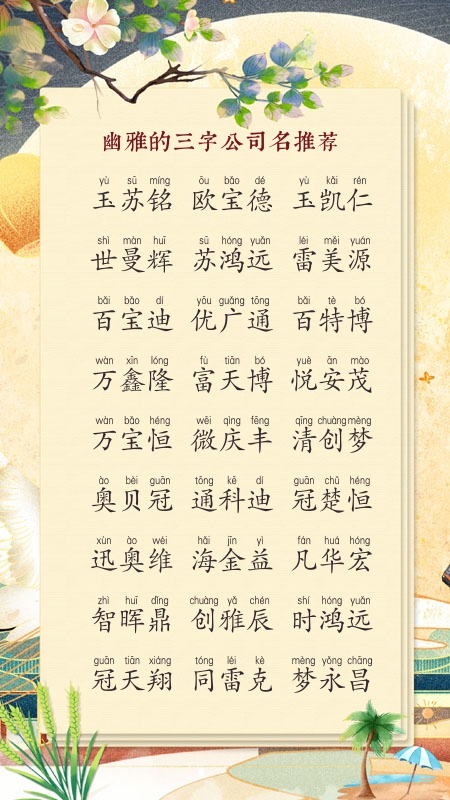 幽雅的三字公司名推荐
yù sū míng ōu bǎo dé yù kǎi rén
玉苏铭 欧宝德 玉凯仁
shì màn huī sū hóng yuǎn léi měi yuán
世曼辉 苏鸿远 雷美源
bǎi bǎo dí yōu guǎng tōng bǎi tè bó
百宝迪 优广通 百特博
wàn xīn lóng fù tiān bó yuè ān mào
万鑫隆 富天博 悦安茂
wàn bǎo héng wēi qìng fēng qīng chuàng mèng
万宝恒 微庆丰 清创梦
ào bèi guān tōng kē dí guān chǔ héng
奥贝冠 通科迪 冠楚恒
xùn ào wéi hǎi jīn yì fán huá hóng
迅奥维 海金益 凡华宏
zhì huī dǐng chuàng yǎ chén shí hóng yuǎn
智晖鼎 创雅辰 时鸿远
guān tiān xiáng tóng léi kè mèng yǒng chāng
冠天翔 同雷克 梦永昌